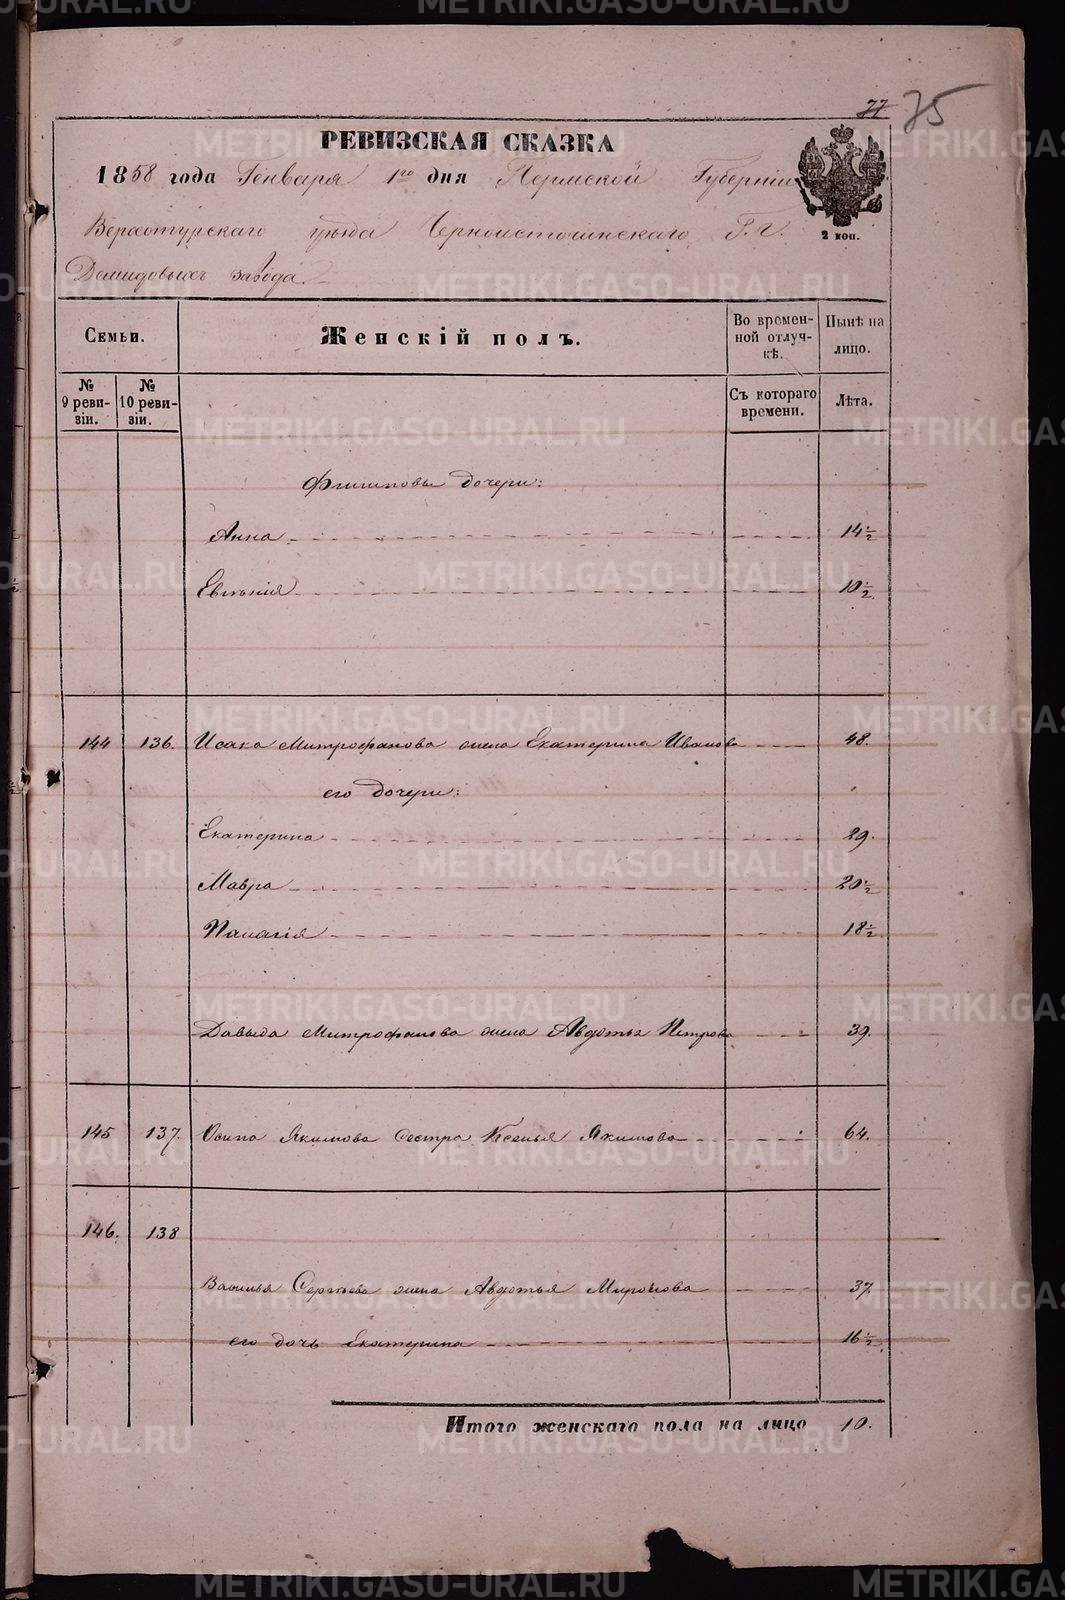 77 75
РЕВИЗСКАЯ СКАЗКА
1858 года Генваря 1го дня Пермской Губерніи
Верхотурскаго уѣзда Черноисточинскаго Г.г.
Демидовыхъ завода
2 коп.
Семьи. Женскій полъ. Во времен-ной отлуч-кѣ. Нынѣ на лицо.
№ 9 реви-зіи. № 10 реви-зіи. Съ котораго времени. Лѣта.
Филиповы дочери:
Анна 14½
Евгенія 10½
144 136. Исака Митрофанова жена Екатерина Иванова 48.
его дочери:
Екатерина 29.
Мавра 20½
Палагія 18½
Давыда Митрофанова жена Авдотья Петрова 39.
145 137. Осипа Якимова сестра Ксенья Якимова 64.
146. 138
Василья Сергѣева жена Авдотья Миронова 37.
его дочь Екатерина 16½
Итого женскаго пола на лицо 10.
METRIKI.GASO-URAL.RU